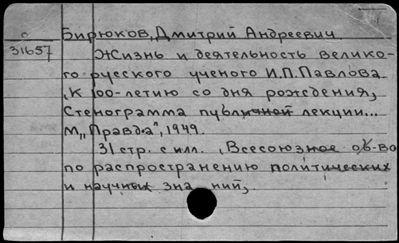 о Бирюков, Дмитрий Андреевич.
31657 Жизнь и деятельность велико-
го русского ученого И.П.Павлова
/К 100-летию со дня рождения/
Стенограмма публичной лекции...
М, "Правда", 1949.
31 стр. с илл. /Всесоюзное об-во
по распространению политических
и научных знаний/